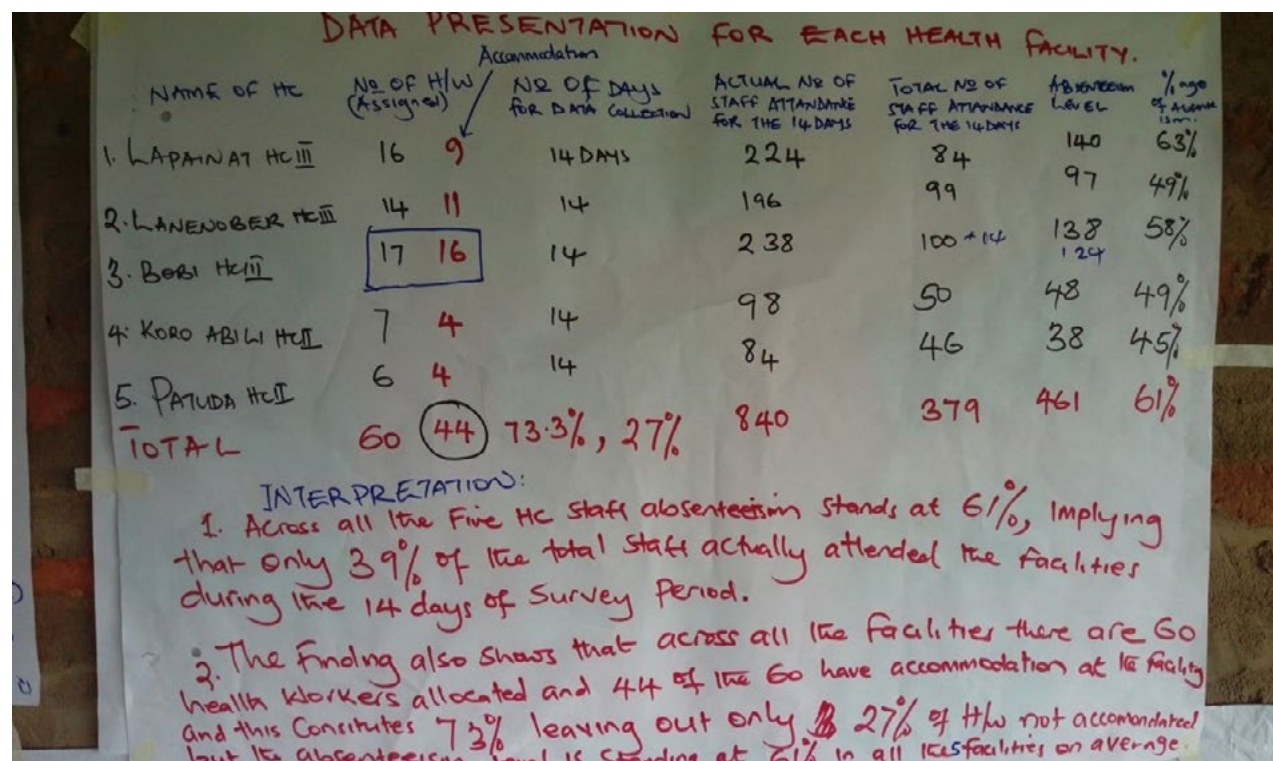 DATA PRESENTATION FOR EACH HEALTH FACILITY.
Accommodation
NAME OF HC № OF H/W (Assigned) № OF DAYS FOR DATA COLLECTION ACTUAL № OF STAFF ATTANDANCE FOR THE 14 DAYS TOTAL № OF STAFF ATTANDANCE FOR THE 14 DAYS ABSENTEEISM LEVEL %age of
1. LAPAINAT HC III 16 9 14 DAYS 224 84 140 63%
2. LANENOBER HC III 14 11 14 196 99 97 49%
3. BOBI HC III 17 16 14 238 100 + 14 138 58%
124
4. KORO ABILI HC II 7 4 14 98 50 48 49%
5. PATUDA HC II 6 4 14 84 46 38 45%
TOTAL 60 44 73.3%, 27% 840 379 461 61%
INTERPRETATION:
1. Across all the Five HC staff absenteeism stands at 61%, Implying
that only 39% of the total staff actually attended the facilities
during the 14 days of Survey Period.
2. The Finding also shows that across all the facilities there are 60
health workers allocated and 44 of the 60 have accommodation at the facility
and this Consitutes 73% leaving out only 27% of H/W not accomondated
but the absenteeism level is standing at 61% in all the facilities on average.